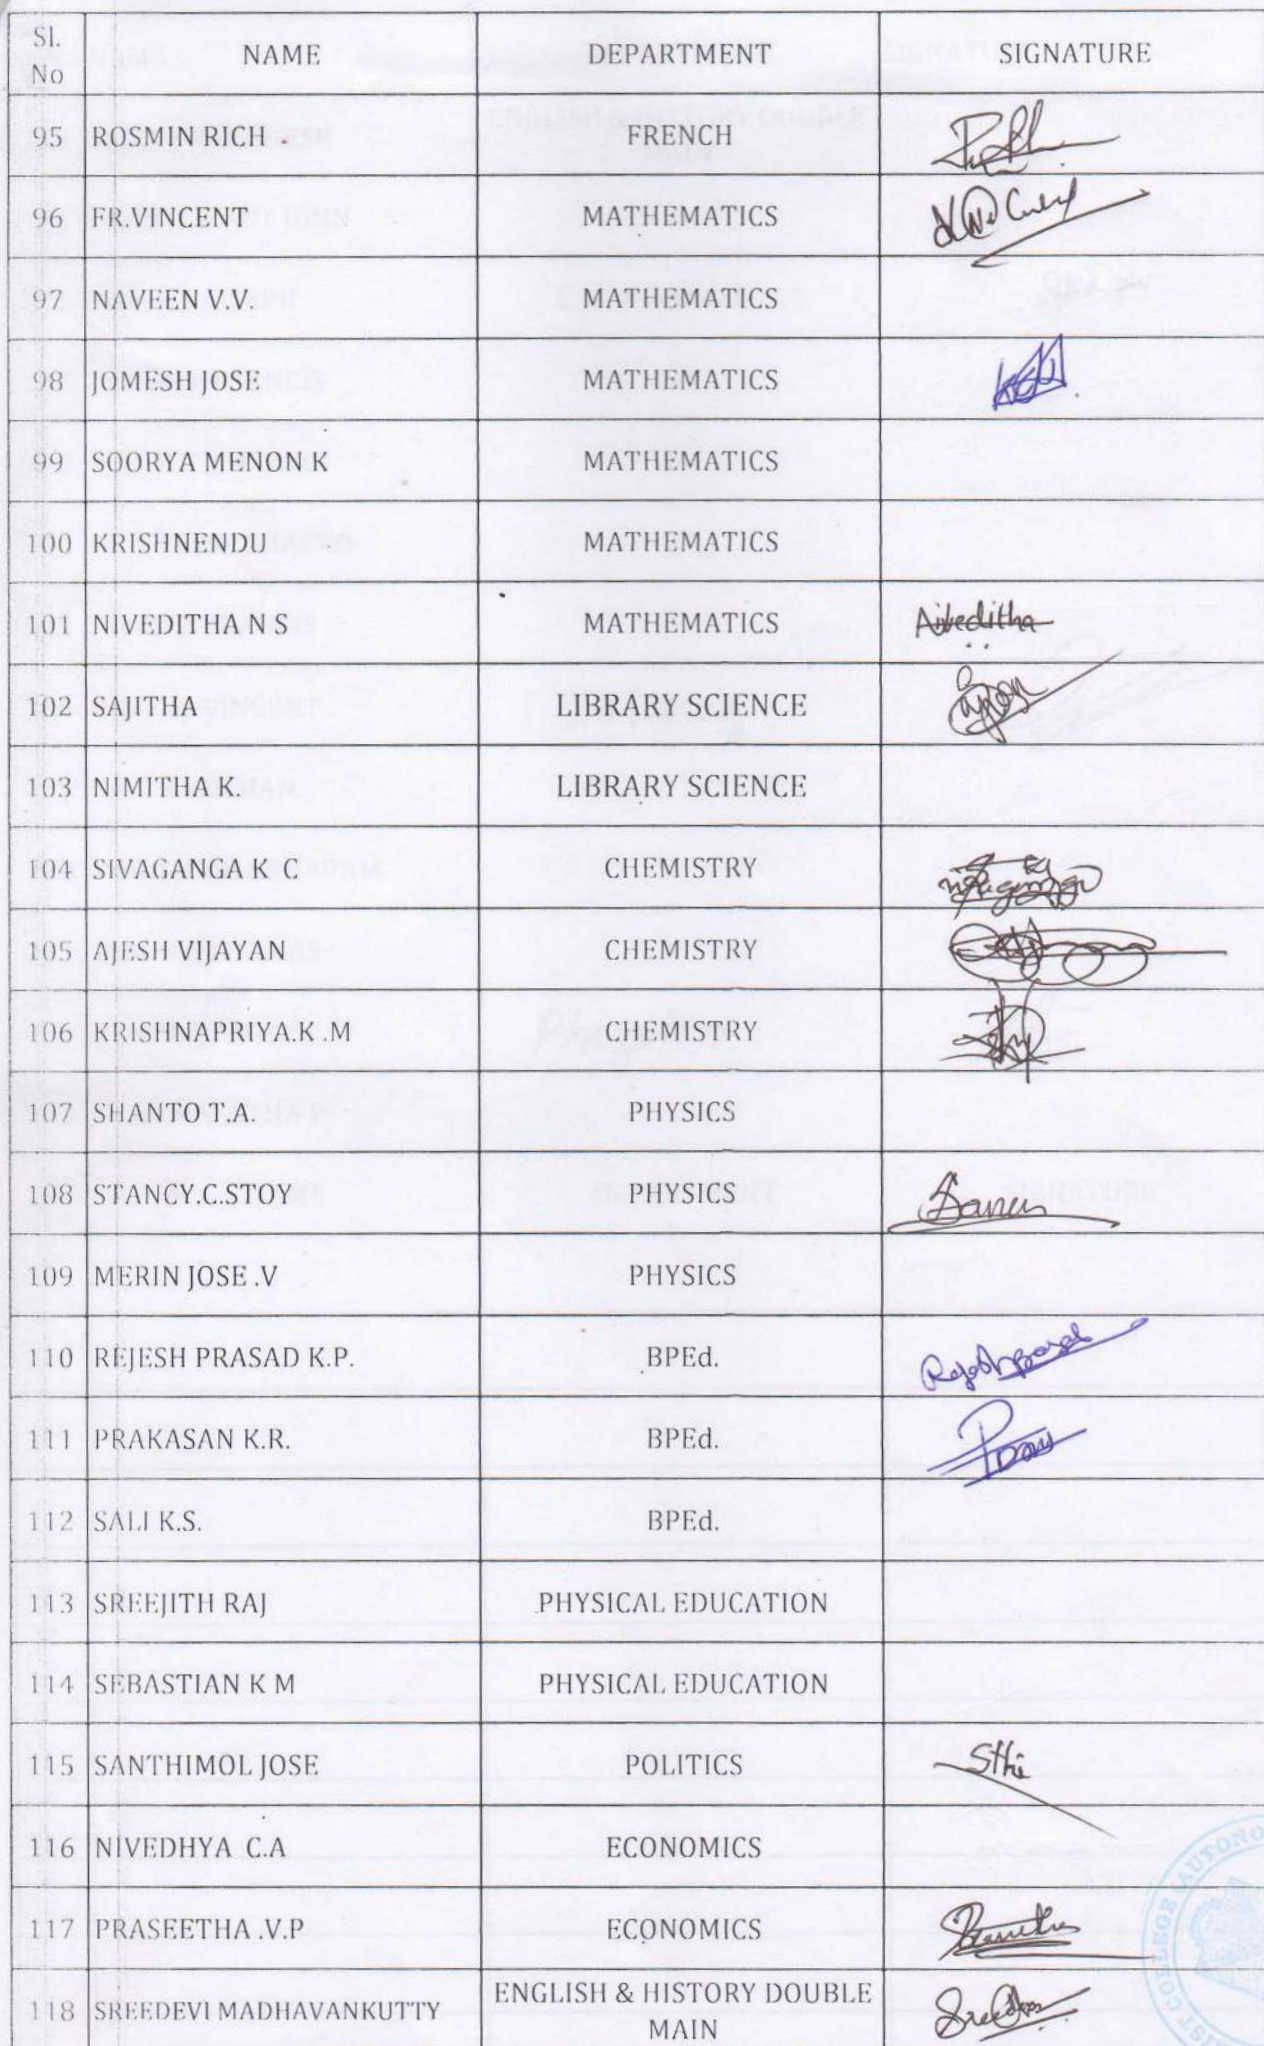 Sl. No NAME DEPARTMENT SIGNATURE
95 ROSMIN RICH FRENCH
96 FR.VINCENT MATHEMATICS
97 NAVEEN V.V. MATHEMATICS
98 JOMESH JOSE MATHEMATICS
99 SOORYA MENON K MATHEMATICS
100 KRISHNENDU MATHEMATICS
101 NIVEDITHA N S MATHEMATICS Niveditha
102 SAJITHA LIBRARY SCIENCE
103 NIMITHA K. LIBRARY SCIENCE
104 SIVAGANGA K C CHEMISTRY
105 AJESH VIJAYAN CHEMISTRY
106 KRISHNAPRIYA.K .M CHEMISTRY
107 SHANTO T.A. PHYSICS
108 STANCY.C.STOY PHYSICS
109 MERIN JOSE .V PHYSICS
110 REJESH PRASAD K.P. BPEd.
111 PRAKASAN K.R. BPEd.
112 SALI K.S. BPEd.
113 SREEJITH RAJ PHYSICAL EDUCATION
114 SEBASTIAN K M PHYSICAL EDUCATION
115 SANTHIMOL JOSE POLITICS
116 NIVEDHYA C.A ECONOMICS
117 PRASEETHA .V.P ECONOMICS
118 SREEDEVI MADHAVANKUTTY ENGLISH & HISTORY DOUBLE
MAIN
COLLEGE